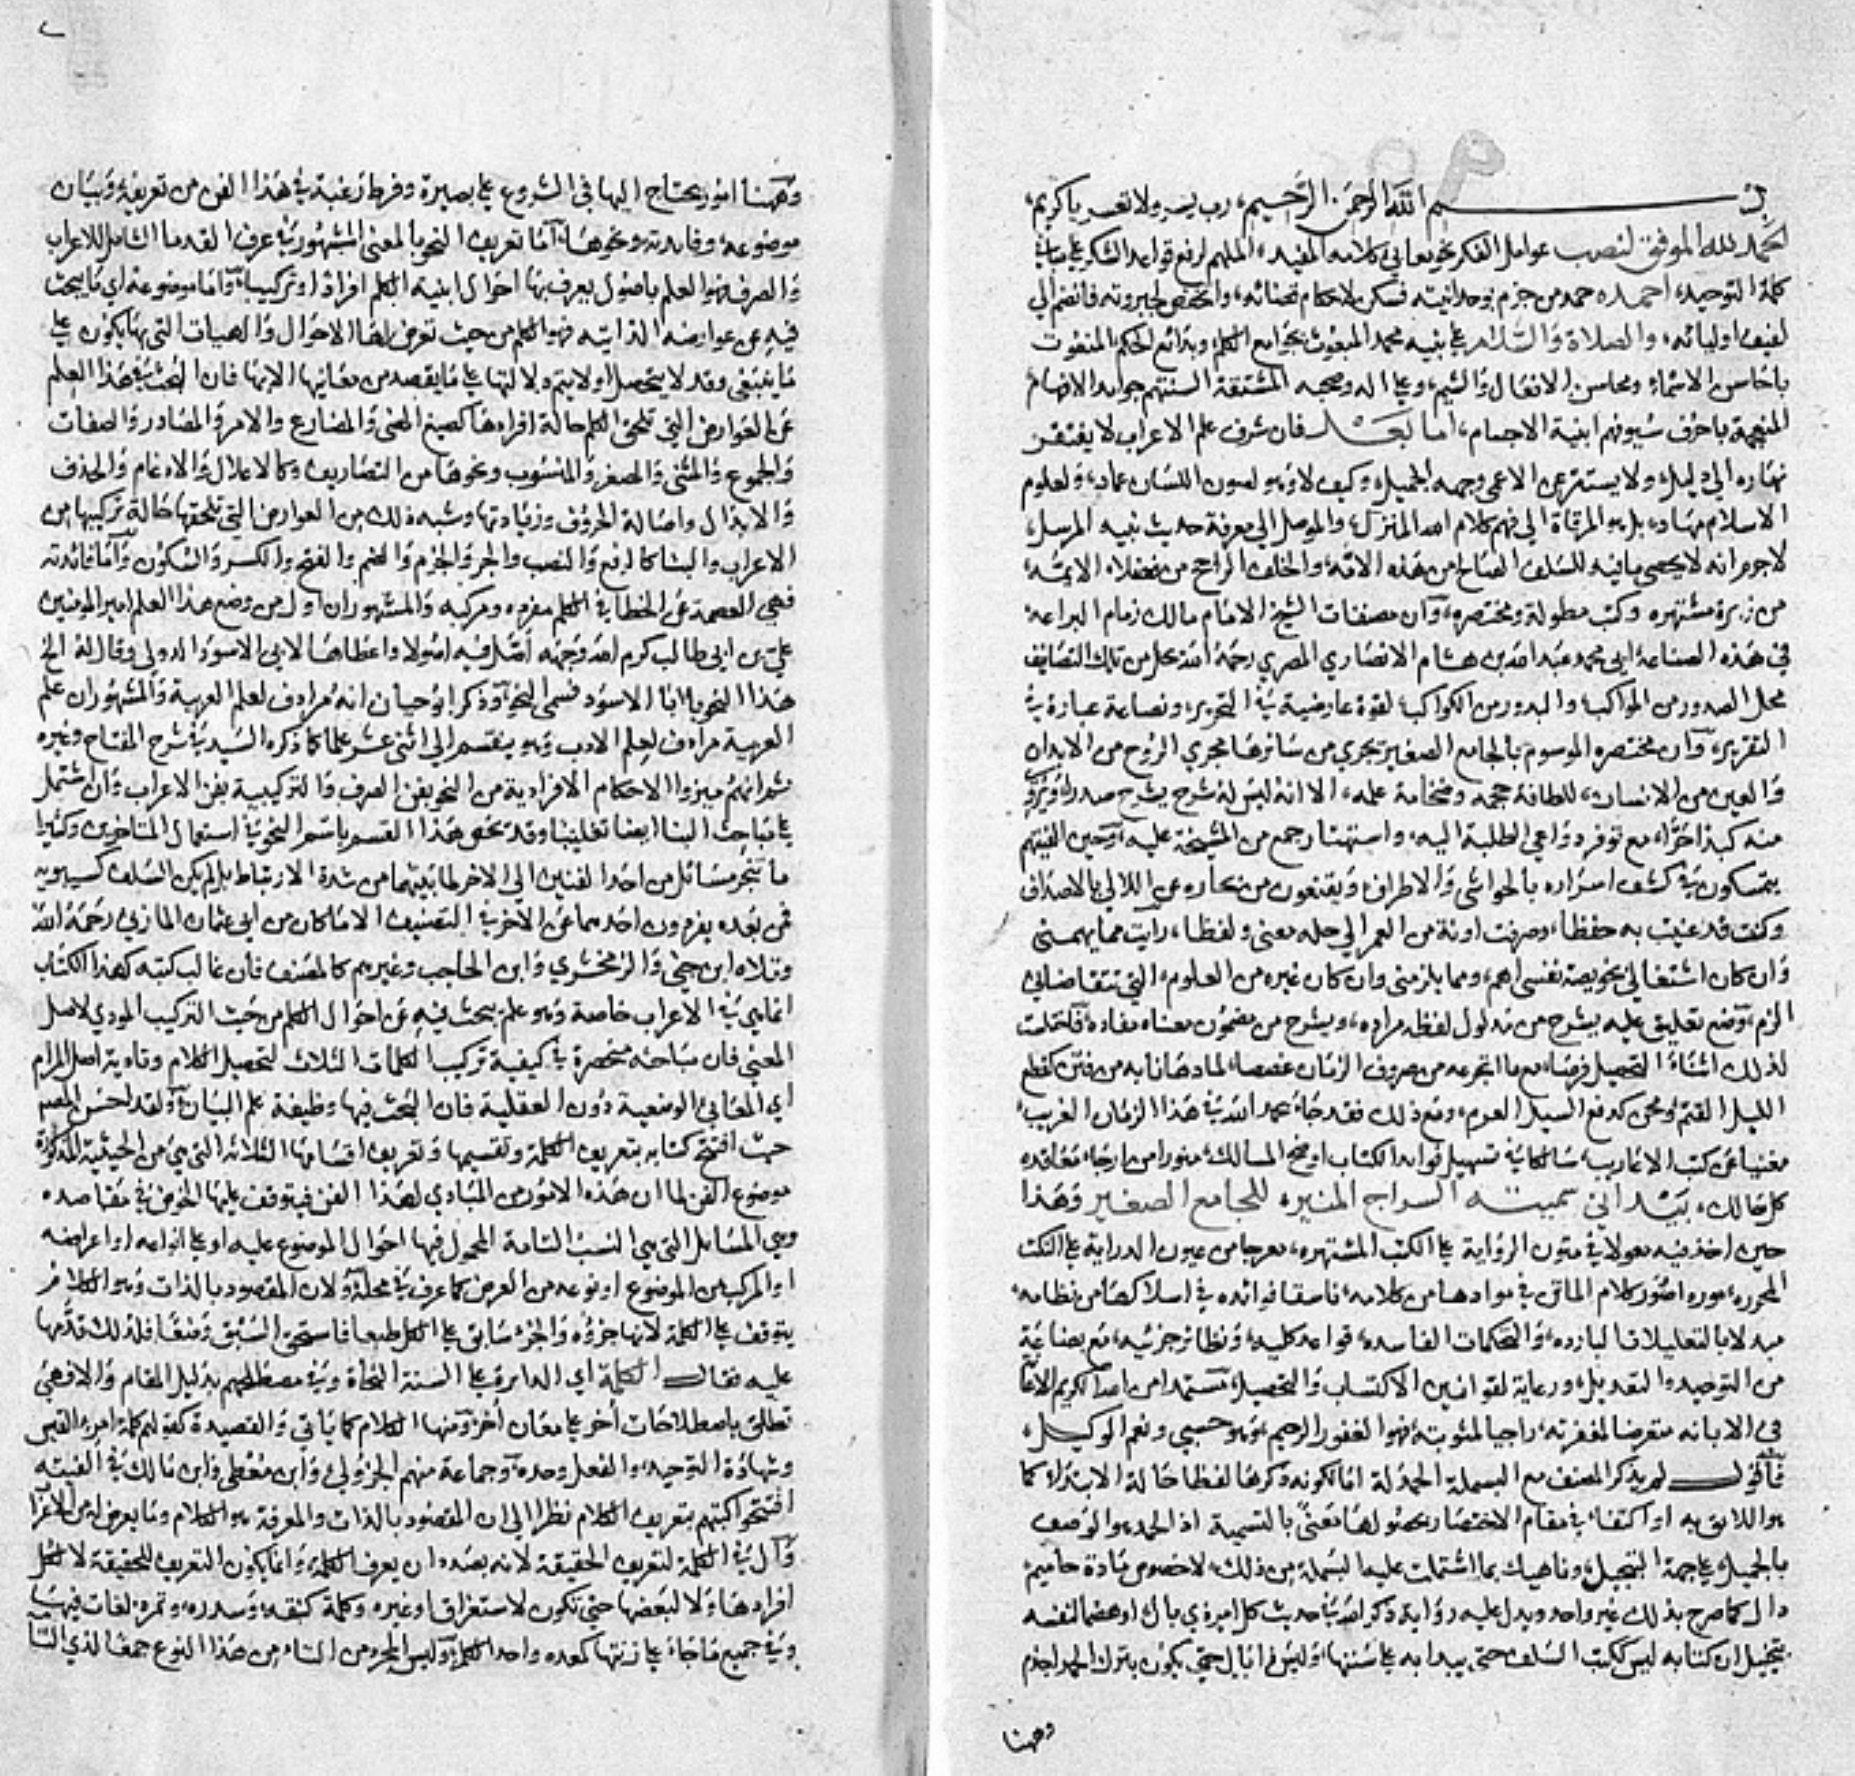 بسم الله الرحمن الرحيم، رب يسر ولا تعسر يا كريم،
الحمد لله الموفق لنصب عوامل الفكر نحو معاني كلامه المفيد، الملهم لرفع قواعد الشكر على مباني
كلمة التوحيد، احمده حمد من جزم بوحدانيته فسكن لاحكام قضائه، وانخفض لجبروته فانضم الي
لفيف اوليائه، والصلاة والسلام على نبيه محمد المبعوث بجوامع الكلم وبدائع الحكم المنعوت
باحاسن الاسماء ومحاسن الافعال والشيم، وعلى اله وصحبه المشتقة السنتهم جوامد الاصنام
المنعجمة باحرف سيوفهم ابنية الاجسام، اما بعد فان شرف علم الاعراب لا يفتقر
نهاره الي دليل، ولا يستتر عن الاعمى وجهه الجميل، وكيف لا وهو لصون اللسان عماد، ولعلوم
الاسلام مهاد، بل هو المرقاة الى فهم كلام الله المنزل، والموصل الي معرفة حديث نبيه المرسل،
لا جرم انه لا يحصى ما فيه للسلف الصالح من هذه الامة، والخلف الراجح من فضلاء الايمة،
من زبرة مشتهره وكتب مطولة ومختصره، وان مصنفات الشيخ الامام مالك زمام البراعة
في هذه الصناعة ابي محمد عبد الله بن هشام الانصاري المصري رحمه الله تحل من تلك التصانيف
محل الصدور من المواكب، والبدور من الكواكب، لقوة عارضية في التحرير، ونصاعة عبارة في
التقرير، وان مختصره الموسوم بالجامع الصغير يجري من سائرها مجري الروح من الابدان
والعين من الانسان، للطافة حجمه وضخامة علمه، الا انه ليس له شرح يشرح صدرا ويروي
منه كبدا حرا، مع توفر دواعي الطلبة اليه، واستهتار جمع من المشيخة عليه، وحين الفيتهم
يتمسكون في كشف اسراره بالحواشي والاطراف، ويقنعون من بحاره عن اللالي بالاصداف
وكنت قد عنيت به حفظا، وصرفت اونة من العمر الي حله معنى ولفظا، رايت مما يهمني
وان كان اشتغالي بخويصة نفسي اهم، ومما يلزمني وان كان غيره من العلوم التي تتقاضاني
الزم، وضع تعليق عليه يشرح من مدلول لفظه مراده، ويشرح من مضمون معناه مفاده، فاختلست
لذلك اثناء التحصيل فرصا، مع ما اتجرعه من صروف الزمان غصصا، لما دهانا به من فتن كقطع
الليل القتم ومحن كدفع السيل العرم، ومع ذلك فقد جاء بحمد الله في هذا الزمان الغريب،
مغنيا عن كتب الاعاريب، سالكا في تسهيل فوائد الكتاب اوضح المسالك، منورا من ارجاء مقاصده
كل حالك، بيد اني سميته السراج المنير، للجامع الصغير وهذا
حين اخذ فيه معولا في متون الرواية على الكتب المشتهره، معرجا من عيون الدراية على النكت
المحرره، موردا صور كلام الماتن في موادها من كلامه، ناسقا فرائده في اسلاكها من نظامه،
مبدلا بالتعليلات البارده، والتحكمات الفاسده، قواعد كليه، ونظائر جزئيه، مع بضاعة
من التوحيد والتعديل، ورعاية لقوانين الاكتساب والتحصيل، مستمدا من الله الكريم الاعانة
في الابانه متعرضا لمغفرته، راجيا لمثوبته، فهو الغفور الرحيم، وهو حسبي ونعم الوكيل،
فاقول لم يذكر المصنف مع البسملة الحمدلة اما لكونه ذكرها لفظا حالة الابتداء كما
هو اللائق به او اكتفاء في مقام الاختصار بحصولها معنى بالتسمية اذ الحمد هو الوصف
بالجميل على جهة التبجيل، وناهيك بما اشتملت عليه البسملة من ذلك، لا خصوص مادة حاميم
دال كما صرح بذلك غير واحد ويدل عليه رواية ذكر الله في حديث كل امر ذي بال او هضما لنفسه
بتخييل ان كتابه ليس ككتب السلف حتى يبدا به على سننها، وليس ذا بال حتى يكون بترك الحمد اجذم
وههنا
وههنا امور يحتاج اليها في الشروع على بصيرة وفرط رغبة في هذا الفن من تعريفه وبيان
موضوعه وفائدته ونحوها، اما تعريف النحو بالمعنى المشهور في عرف القدما الشامل للاعراب
والصرف فهو العلم باصول يعرف بها احوال ابنية الكلم افرادا وتركيبا، واما موضوعه اي ما يبحث
فيه عن عوارضه الذاتيه فهو الكلم من حيث تعرض لها الاحوال والهيات التي بها يكون على
ما ينبغي وقد لا يتحصل او لا يتم دلالتها على ما يقصد من معانيها الا بها فان البحث في هذا العلم
عن العوارض التي تلحق الكلم حالة افرادها كصيغ المضي والمضارع والامر والمصادر والصفات
والجموع والمثنى والمصغر والمنسوب ونحوها من التصاريف وكالاعلال والادغام والحذف
والابدال واصالة الحروف وزيادتها وشبه ذلك من العوارض التي تلحقها حالة تركيبها من
الاعراب والبنا كالرفع والنصب والجر والجزم والضم والفتح والكسر والسكون واما فائدته
فهي العصمة عن الخطا في الكلم مفرده ومركبه والمشهور ان اول من وضع هذا العلم امير المومنين
علي بن ابي طالب كرم الله وجهه اصل فيه اصولا واعطاها لابي الاسود الدولي وقال له انح
هذا النحو يا ابا الاسود فسمى النحو وذكر ابو حيان انه مرادف لعلم العربية والمشهور ان علم
العربية مرادف لعلم الادب وهو ينقسم الي اثنى عشر علما كما ذكره السيد في شرح المفتاح وغيره
ثم انهم ميزوا الاحكام الافرادية من النحو بفن الصرف والتركيبية بفن الاعراب وان اشتمل
على مباحث البنا ايضا تغليبا وقد يخص هذا القسم باسم النحو في استعمال المتاخرين وكثيرا
ما تنجر مسائل من احد الفنين الي الاخر لما بينهما من شدة الارتباط بل لم يكن السلف كسيبويه
فمن بعده يفردون احدهما عن الاخر في التصنيف الا ما كان من ابي عثمان المازني رحمه الله
وتلاه ابن جني والزمخشري وابن الحاجب وغيرهم كالمصنف فان غالب كتبه كهذا الكتاب
انما هي في الاعراب خاصة وهو علم يبحث فيه عن احوال الكلم من حيث التركيب المودي لاصل
المعنى فان مباحثه منحصرة في كيفية تركيب الكلمات الثلاث لتحصيل الكلام وتادية اصل المرام
اي المعاني الوضعية دون العقلية فان البحث فيها وظيفة علم البيان ولقد احسن المصنف
حيث افتتح كتابه بتعريف الكلمة وتقسيمها وتعريف اقسامها الثلاثه التي هي من الحيثية المذكورة
موضوع الفن لما ان هذه الامور من المبادي لهذا الفن فيتوقف عليها الخوض في مقاصده
وهي المسايل التي هي النسب التامة المحمول فيها احوال الموضوع عليه او على انواعه او اعراضه
او المركب من الموضوع او نوعه من العرض كما عرف في محله ولان المقصود بالذات وهو الكلام
يتوقف على الكلمة لانها جزؤه والجزء سابق على الكل طبعا فاستحق السبق وضعا فلذلك قدمها
عليه فقال الكلمة اي الدايرة على السنة النحاة وفي مصطلحهم بدليل المقام والا فهي
تطلق باصطلاحات أخر على معان أخر ومنها الكلام كما ياتي والقصيدة كقولهم كلمة امرء القيس
وشهادة التوحيد، والفعل وحده وجماعة منهم الجزولي وابن معطي وابن مالك في الفيته
افتتحوا كتبهم بتعريف الكلام نظرا الي ان المقصود بالذات والمعرفة هو الكلام وما يعرض له من الاعراب
وال في الكلمة لتعريف الحقيقة لانه بصدد ان يعرف الكلمة، وانما يكون التعريف للحقيقة لا لكل
افرادها ولا لبعضها حتى تكون لاستغراق او غيره وكلمة كنبقه، وسدره، وتمره لغات فيها
وفي جميع ما جاء على زنتها كمعده واحد الكلم، وليس المجرد من التاء من هذا النوع جمعا لذي التا